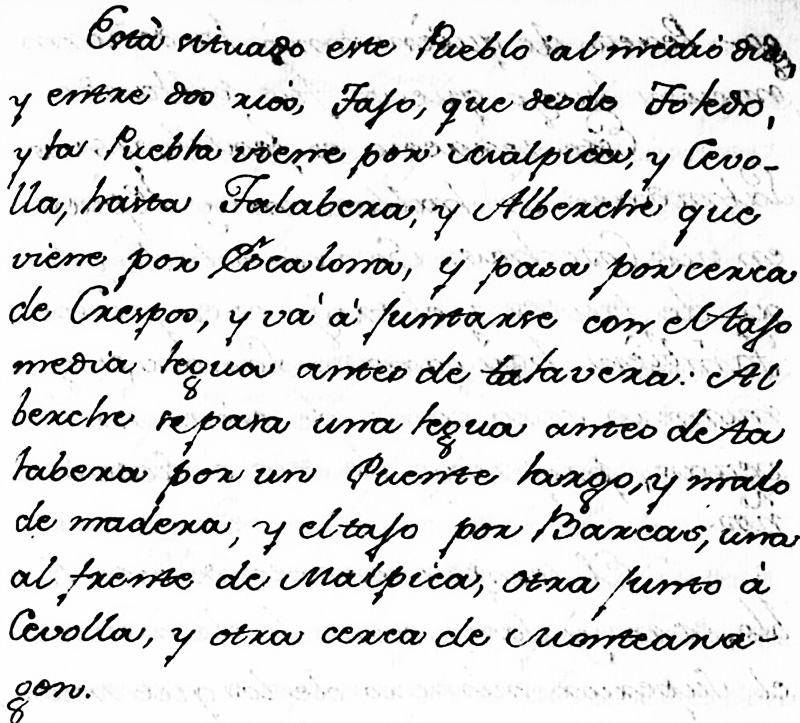 Está situado este Pueblo al medio dia,
y entre dos rios, Tajo, que desde Toledo,
y la Puebla viene por Malpica, y Cevo-
lla, hasta Talabera, y Alberche que
viene por Escalona, y pasa por cerca
de Crespos, y vá á juntarse con el tajo
media legua antes de talavera. Al
berche se pasa una legua antes de ta
labera por un Puente largo, y malo
de madera, y el tajo por Barcas, una
al frente de Malpica, otra junto à
Cevolla, y otra cerca de Monteara-
gon.